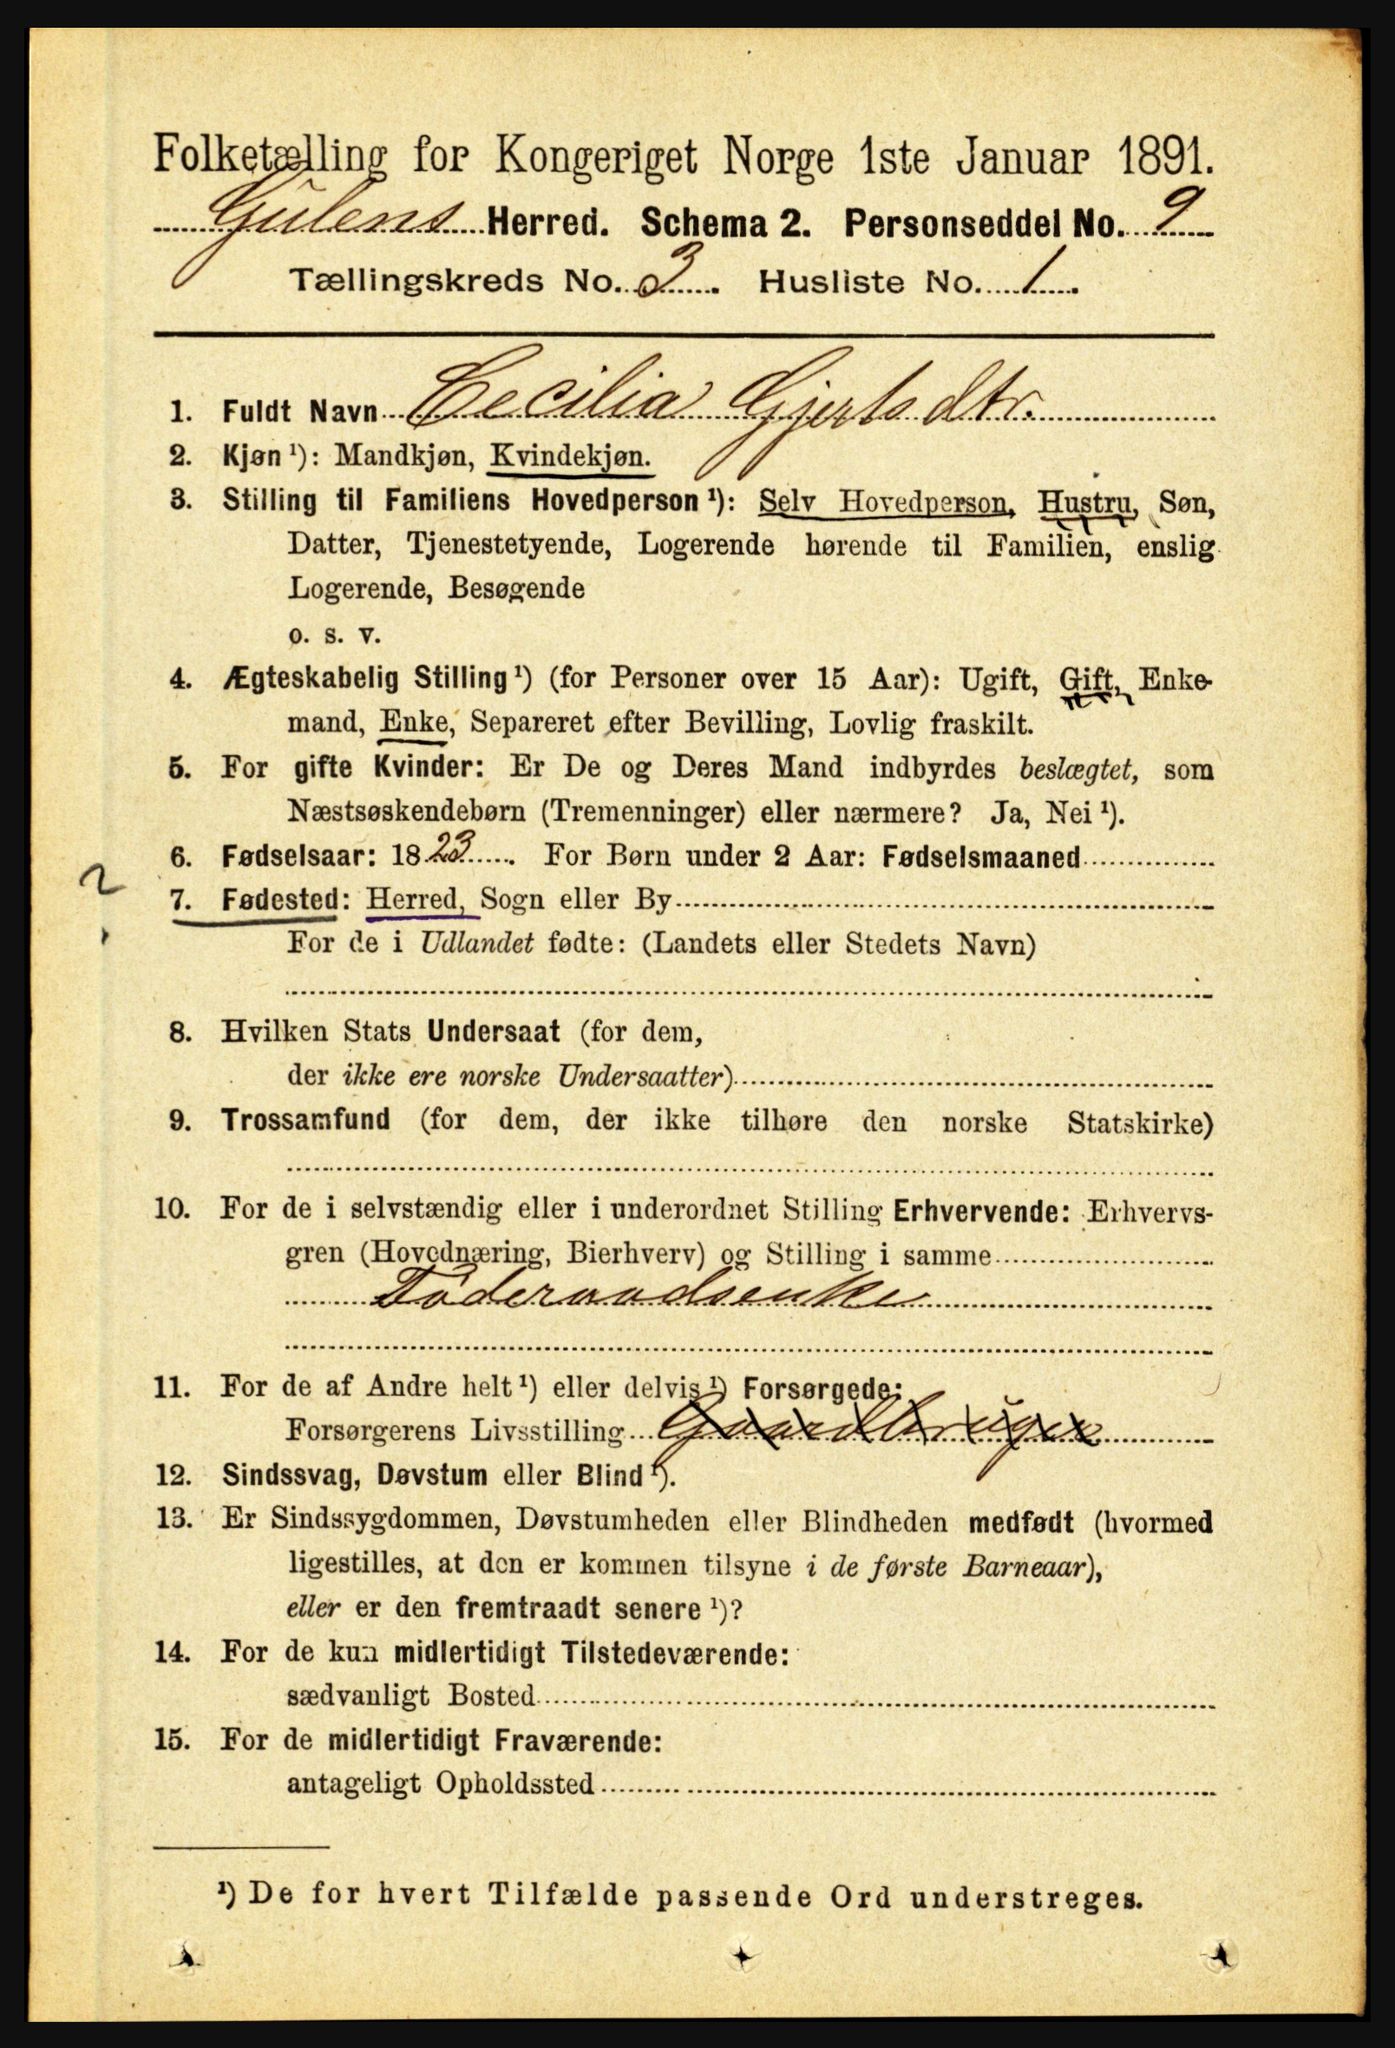 Folketælling for Kongeriget Norge 1ste Januar 1891.
Gulens Herred. Schema 2. Personseddel No. 9
Tællingskreds No. 3. Husliste No. 1.
1. Fuldt Navn Cecilia Gjertsdtr.
2. Kjøn ¹): Mandkjøn, Kvindekjøn.
3. Stilling til Familiens Hovedperson ¹): Selv Hovedperson, Hustru, Søn,
Datter, Tjenestetyende, Logerende hørende til Familien, enslig
Logerende, Besøgende
o. s. v.
4. Ægteskabelig Stilling ¹) (for Personer over 15 Aar): Ugift, Gift, Enke-
mand, Enke, Separeret efter Bevilling, Lovlig fraskilt.
5. For gifte Kvinder: Er De og Deres Mand indbyrdes beslægtet, som
Næstsøskendebørn (Tremenninger) eller nærmere? Ja, Nei ¹).
6. Fødselsaar: 1823. For Børn under 2 Aar: Fødselsmaaned
2
7. Fødested: Herred, Sogn eller By
For de i Udlandet fødte: (Landets eller Stedets Navn)
8. Hvilken Stats Undersaat (for dem,
der ikke ere norske Undersaatter)
9. Trossamfund (for dem, der ikke tilhøre den norske Statskirke)
10. For de i selvstændig eller i underordnet Stilling Erhvervende: Erhvervs-
gren (Hovednæring, Bierhverv) og Stilling i samme
Föderaadsenke
11. For de af Andre helt ¹) eller delvis ¹) Forsørgede:
Forsørgerens Livsstilling Gaardbruger
12. Sindssvag, Døvstum eller Blind ¹).
13. Er Sindssygdommen, Døvstumheden eller Blindheden medfødt (hvormed
ligestilles, at den er kommen tilsyne i de første Barneaar),
eller er den fremtraadt senere ¹)?
14. For de kun midlertidigt Tilstedeværende:
sædvanligt Bosted
15. For de midlertidigt Fraværende:
antageligt Opholdssted
¹) De for hvert Tilfælde passende Ord understreges.